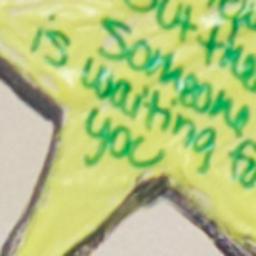 out the
is someone
waiting fo
you